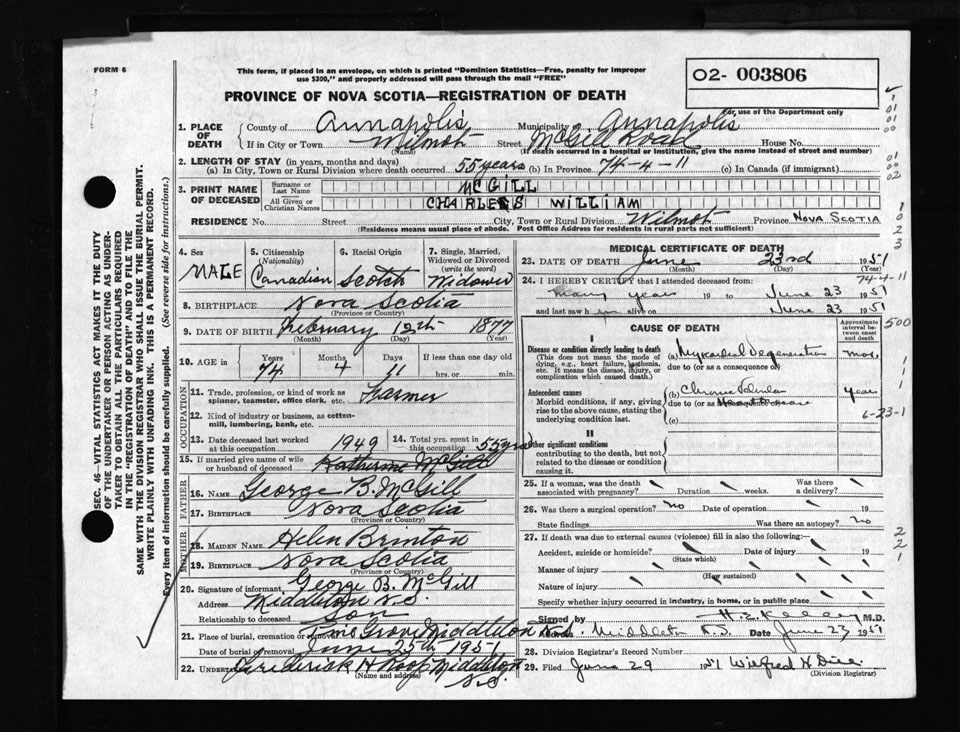 FORM 6
This form, if placed in an envelope, on which is printed "Dominion Statistics—Free, penalty for improper
use $300," and properly addressed will pass through the mail "FREE"
02- 003806
For use of the Department only
PROVINCE OF NOVA SCOTIA—REGISTRATION OF DEATH
1. PLACE OF DEATH County of Annapolis Municipality Annapolis
If in City or Town Wilmot (Name) Street McGill Road House No.
(If death occurred in a hospital or institution, give the name instead of street and number)
2. LENGTH OF STAY (in years, months and days)
(a) In City, Town or Rural Division where death occurred 55 years (b) In Province 74-4-11 (c) In Canada (if immigrant)
3. PRINT NAME OF DECEASED Surname or Last Name McGILL
All Given or Christian Names CHARLES WILLIAM
RESIDENCE No. Street City, Town or Rural Division Wilmot Province NOVA SCOTIA
(Residence means usual place of abode. Post Office Address for residents in rural parts not sufficient)
4. Sex MALE
5. Citizenship (Nationality) Canadian
6. Racial Origin Scotch
7. Single, Married, Widowed or Divorced (write the word) Widower
8. BIRTHPLACE Nova Scotia
(Province or Country)
9. DATE OF BIRTH February 12th 1877
(Month) (Day) (Year)
10. AGE in Years 74 Months 4 Days 11 If less than one day old hrs. or min.
OCCUPATION
11. Trade, profession, or kind of work as spinner, teamster, office clerk, etc. Farmer
12. Kind of industry or business, as cotton-mill, lumbering, bank, etc.
13. Date deceased last worked at this occupation 1949
14. Total yrs. spent in this occupation 55 yrs
15. If married give name of wife or husband of deceased Katherine McGill
FATHER
16. NAME George B. McGill
17. BIRTHPLACE Nova Scotia
(Province or Country)
MOTHER
18. MAIDEN NAME Helen Brinton
19. BIRTHPLACE Nova Scotia
(Province or Country)
20. Signature of informant George B. McGill
Address Middleton N.S.
Relationship to deceased Son
21. Place of burial, cremation or removal Pine Grove Middleton N.S.
Date of burial or removal June 25th 1951
22. Undertaker Frederick H Roop Middleton
(Name and address) N.S.
MEDICAL CERTIFICATE OF DEATH
23. DATE OF DEATH June 23rd 1951
(Month) (Day) (Year)
74-4-11
24. I HEREBY CERTIFY that I attended deceased from:
many years 19 to June 23 1951
and last saw him alive on June 23 1951
CAUSE OF DEATH
Approximate interval between onset and death
500
I
Disease or condition directly leading to death
(This does not mean the mode of dying, e.g., heart failure, asthenia, etc. It means the disease, injury, or complication which caused death.)
(a) Myocardial Degeneration mos.
due to (or as a consequence of)
Antecedent causes
Morbid conditions, if any, giving rise to the above cause, stating the underlying condition last.
(b) Chronic Valvular years
due to (or as Heart Disease
6-23-1
(c)
II
Other significant conditions
contributing to the death, but not related to the disease or condition causing it.
25. If a woman, was the death associated with pregnancy? Duration weeks. Was there a delivery?
26. Was there a surgical operation? no Date of operation 19
State findings Was there an autopsy? no
27. If death was due to external causes (violence) fill in also the following:—
Accident, suicide or homicide? Date of injury 19
(State which)
Manner of injury
(How sustained)
Nature of injury
Specify whether injury occurred in industry, in home, or in public place
Signed by M.D.
Address Middleton N.S. Date June 23 1951
28. Division Registrar's Record Number
29. Filed June 29 1951 Wilfred H
(Division Registrar)
SEC. 46—VITAL STATISTICS ACT MAKES IT THE DUTY
OF THE UNDERTAKER OR PERSON ACTING AS UNDER-
TAKER TO OBTAIN ALL THE PARTICULARS REQUIRED
IN THE "REGISTRATION OF DEATH" AND TO FILE THE
SAME WITH THE DIVISION REGISTRAR WHO SHALL ISSUE THE BURIAL PERMIT.
WRITE PLAINLY WITH UNFADING INK. THIS IS A PERMANENT RECORD.
Every item of information should be carefully supplied. (See reverse side for instructions.)